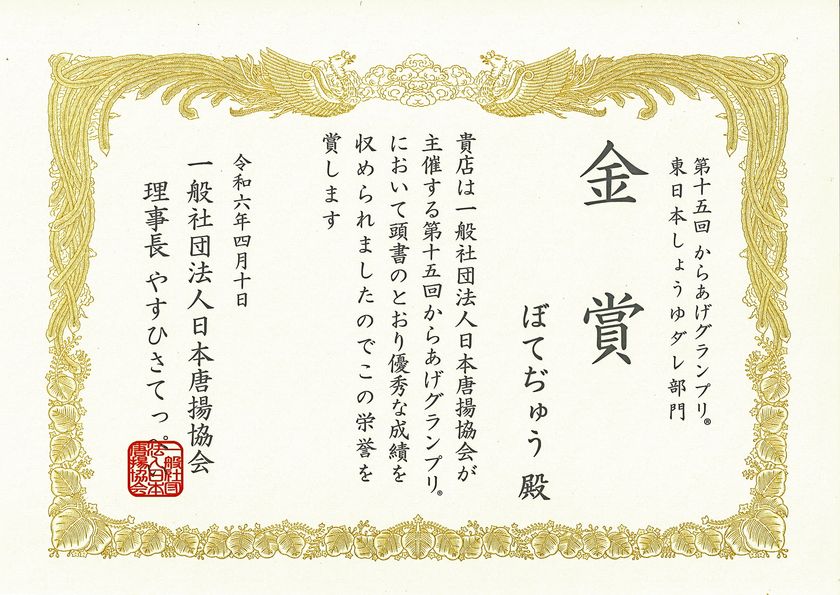 第十五回 からあげグランプリ®
東日本しょうゆダレ部門
金賞
ぼてぢゅう 殿
貴店は一般社団法人日本唐揚協会が
主催する第十五回からあげグランプリ®
において頭書のとおり優秀な成績を
収められましたのでこの栄誉を
賞します
令和六年四月十日
一般社団法人日本唐揚協会
理事長 やすひさてっぺい
一般社団
法人日本
唐揚協会